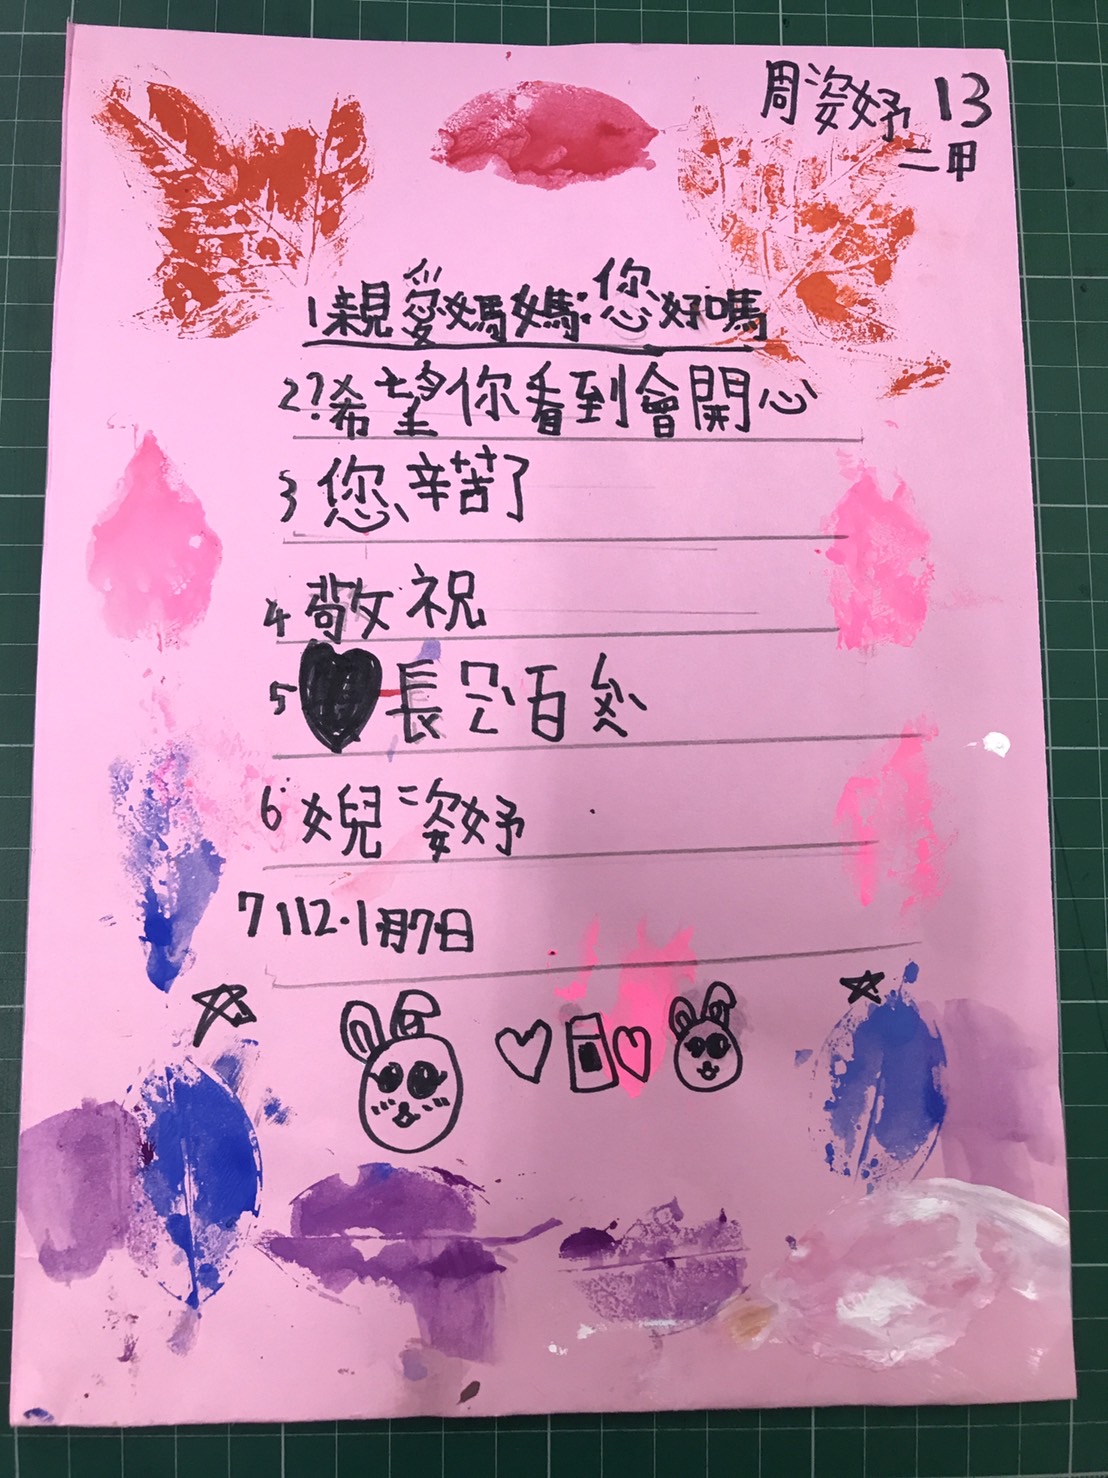 周姿妤 13
二甲
1親愛媽媽:您好嗎
2?希望你看到會開心
3您辛苦了
4敬祝
5 長 百
6女兒姿妤
7 112.1月7日